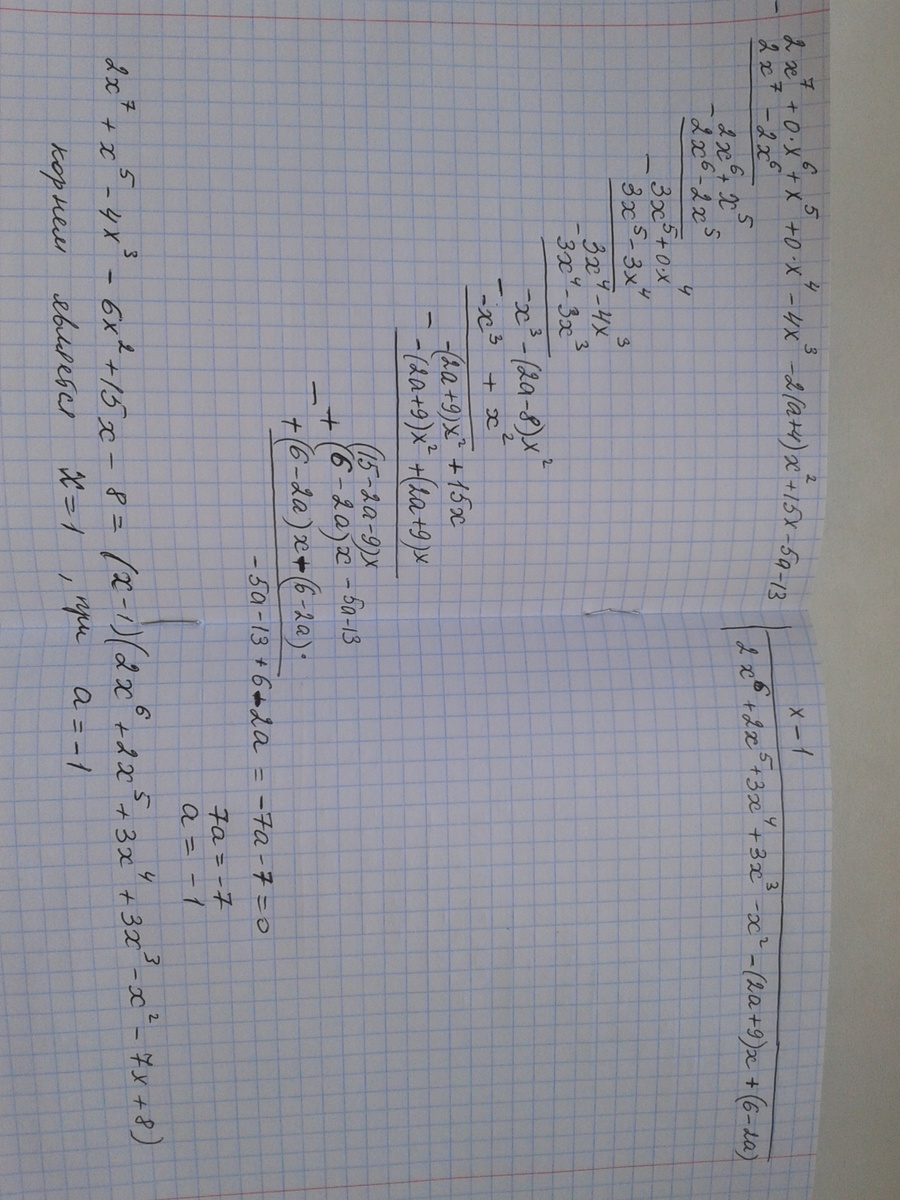 2x⁷ + 0·x⁶ + x⁵ + 0·x⁴ - 4x³ - 2(a+4)x² + 15x - 5a - 13 | x - 1
2x⁷ - 2x⁶ | 2x⁶ + 2x⁵ + 3x⁴ + 3x³ - x² - (2a+9)x + (6-2a)
- 2x⁶ + x⁵
2x⁶ - 2x⁵
- 3x⁵ + 0·x⁴
3x⁵ - 3x⁴
- 3x⁴ - 4x³
3x⁴ - 3x³
- -x³ - (2a-8)x²
-x³ + x²
- -(2a+9)x² + 15x
-(2a+9)x² + (2a+9)x
(15-2a-9)x
- +(6-2a)x - 5a-13
+(6-2a)x - (6-2a)·
-5a-13 + 6-2a = -7a-7 = 0
7a = -7
a = -1
2x⁷ + x⁵ - 4x³ - 6x² + 15x - 8 = (x-1)(2x⁶ + 2x⁵ + 3x⁴ + 3x³ - x² - 7x + 8)
корнем является x=1, при a = -1